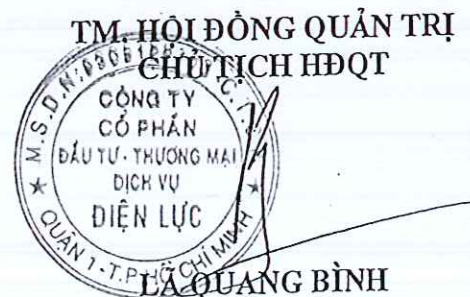 TM. HỘI ĐỒNG QUẢN TRỊ
CHỦ TỊCH HĐQT
M.S.D.N:
C.T.
CÔNG TY
CỔ PHẦN
ĐẦU TƯ - THƯƠNG MẠI
DỊCH VỤ
ĐIỆN LỰC
QUẬN 1 - T.P HỒ CHÍ MINH
LÃ QUANG BÌNH